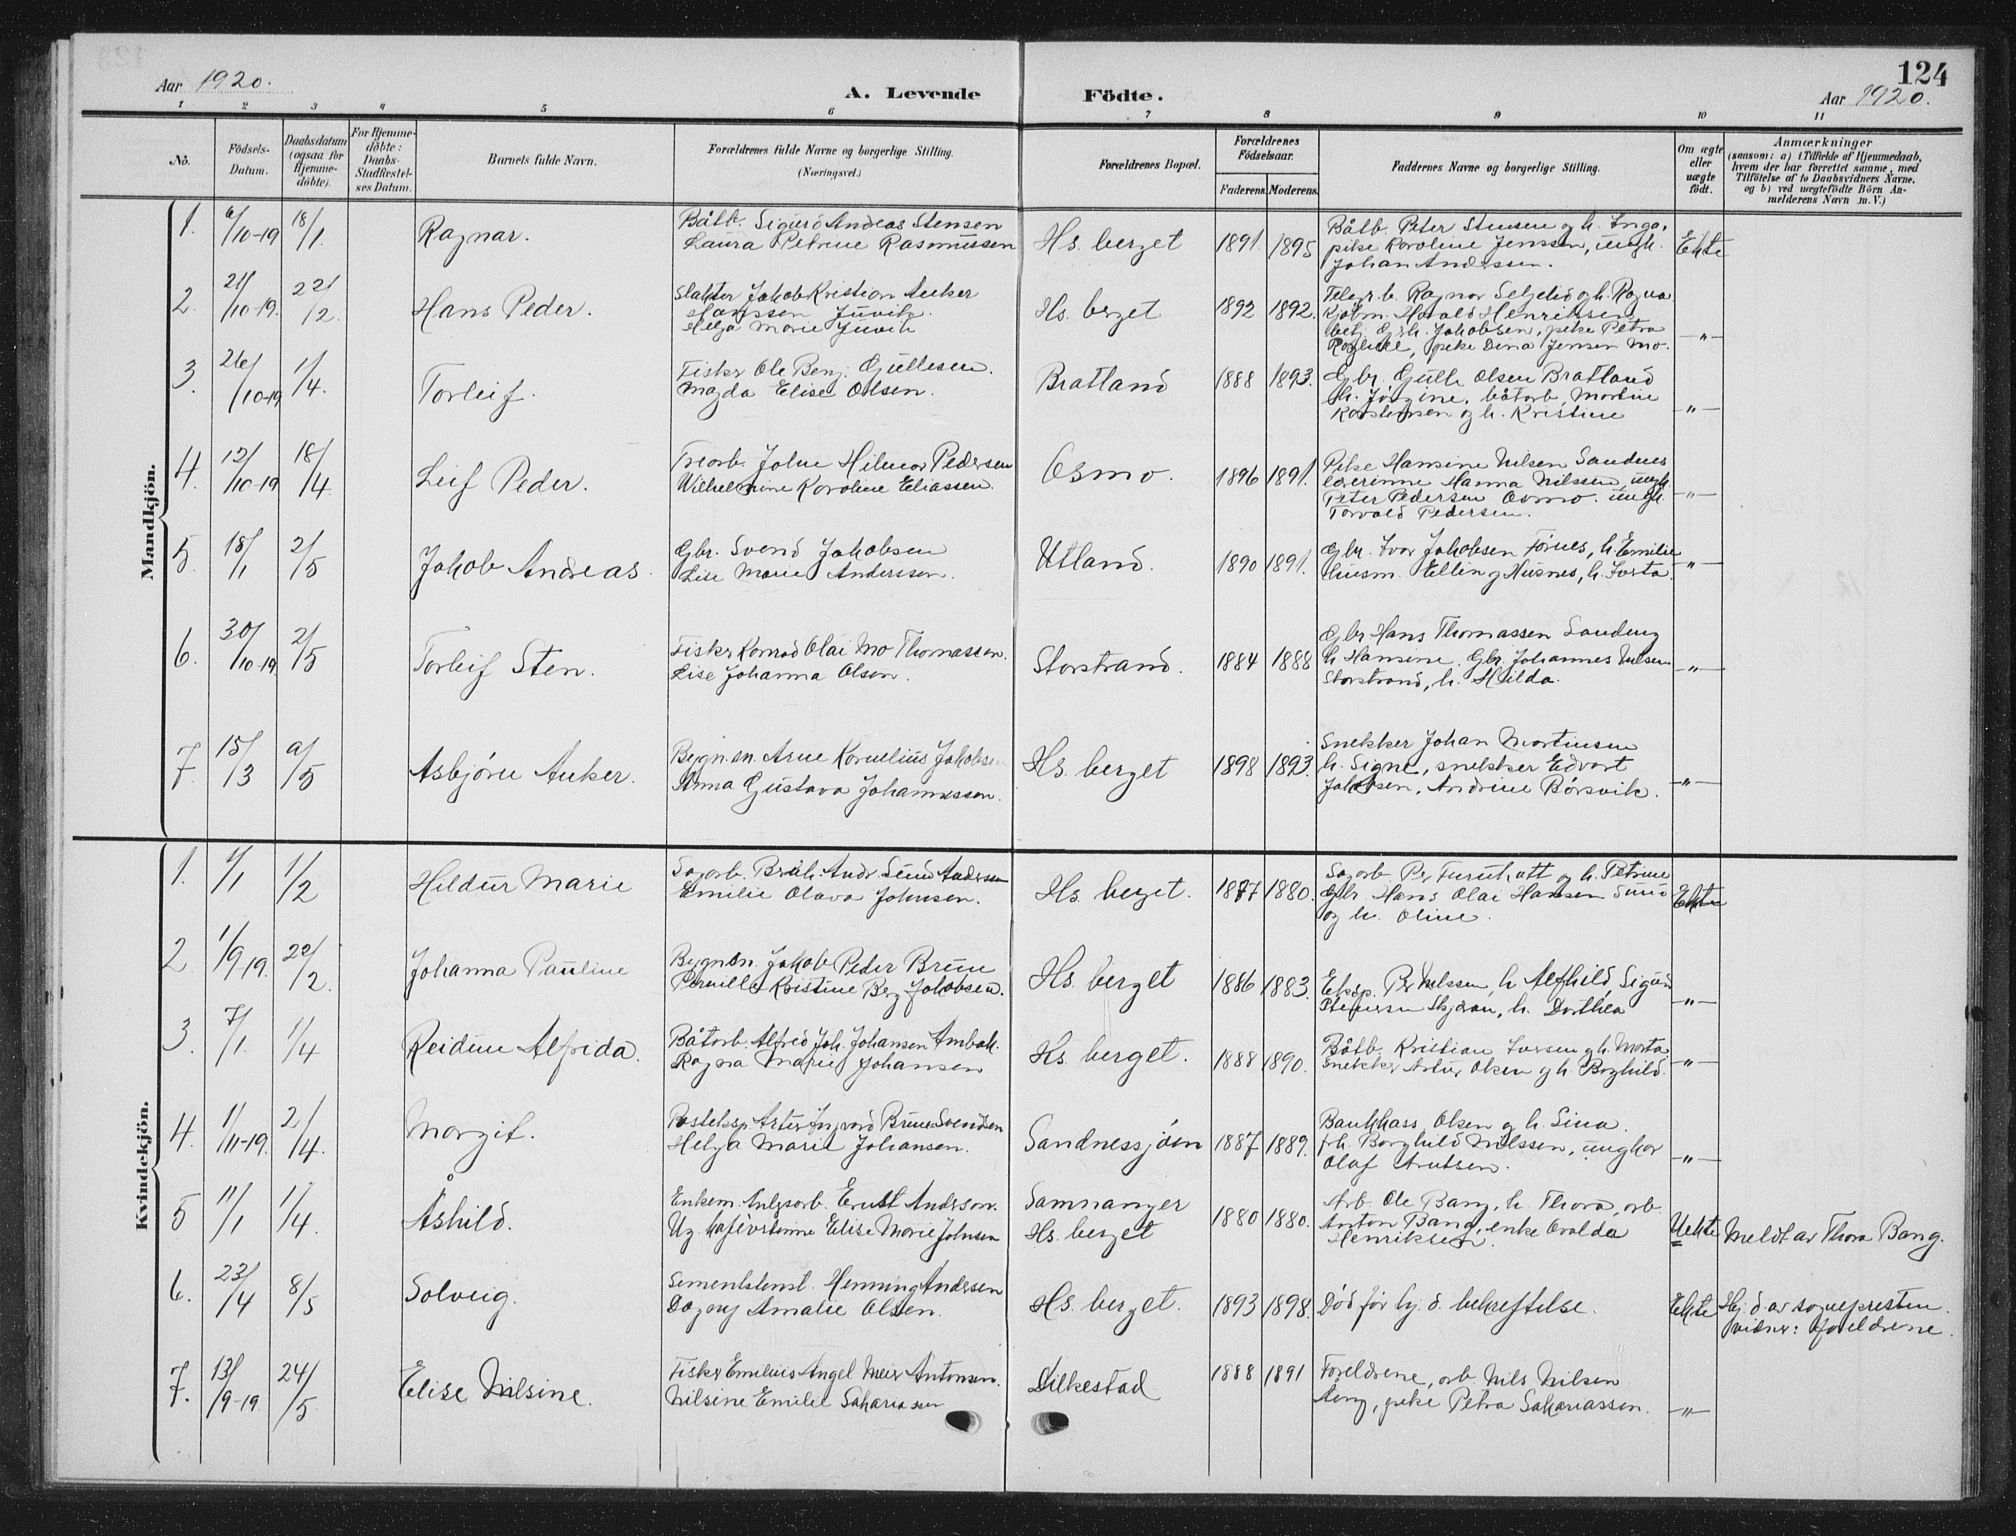 124
Aar 1920.
A. Levende Födte.
Aar 1920.
1 2 3 4 5 6 7 8 9 10 11
No.
Födsels-Datum.
Daabsdatum (ogsaa for Hjemme-döbte).
For Hjemme-döbte: Daabs-Stadfæstel-ses Datum.
Barnets fulde Navn.
Forældrenes fulde Navne og borgerlige Stilling. (Næringsvei.)
Forældrenes Bopæl.
Forældrenes Födselsaar.
Faderens. Moderens.
Faddernes Navne og borgerlige Stilling.
Om ægte eller uægte födt.
Anmærkninger
(saasom: a) i Tilfælde af Hjemmedaab, hvem der har forrettet samme, med Tilföielse af to Daabsvidners Navne, og b) ved uægtefödte Börn An-melderens Navn m. V.)
Mandkjön.
1. 6/10-19 18/1. Ragnar.
Båtb. Sigurd Andreas Stensen
Laura Petrine Rasmussen
Hs. berget 1891. 1895
Båtb. Peter Stensen og h. Inga,
pike Karoline Jenssen, ungk.
Johan Anderssen.
Ekte
2. 21/10-19. 22/2. Hans Peder.
Slakter Jakob Kristian Anker
Hanssen Juvik
Helga Marie Juvik
Hs. berget 1892 1892.
Telegr.b. Ragnar Seljelid og h. Ragna
Kjøbm. Harald Henriksen
betj. Jakobsen, pike Petra
pike Dina Jensen Mo.
-"-
3. 26/10-19 1/4. Torleif.
Fisker Ole Benj. Gullesen.
Magda Elise Olsen.
Bratland 1888 1893.
Gbr. Gulle Olsen Bratland
h. Jørgine, båtarb. Martin
Karstensen og h. Kristine
-"-
4. 12/10-19 18/4. Leif Peder.
Trearb. John Hilmar Pedersen
Wilhelmine Karoline Eliassen.
Osmo. 1896 1891.
Pike Hansine Nilsen Sandnes
lærerinne Hanna Nilssen, ungk.
Peter Pedersen Osmo. ungk.
Torvald Pedersen.
-"-
5. 18/1 2/5 Jakob Andreas.
Gbr. Svend Jakobsen
Lise Marie Anderssen.
Utland. 1890 1891.
Gbr. Ivar Jakobsen Fornes, h. Emilie
husm. Elling Husnes, h. Jorta.
-"-
6. 30/10-19 2/5 Torleif Sten.
Fisker Konrad Olai Mo Thomassen.
Lise Johanna Olsen.
Storstrand. 1884 1888
Gbr Hans Thomassen
h. Hansine. Gbr. Johannes Nilsen
Storstrand, h. Hilda.
-"-
7. 15/3 9/5 Asbjørn Anker.
Bygn.sn. Arne Kornelius Jakobsen
Anna Gustava Johannessen.
Hs. berget 1898 1893.
Snekker Johan Martinsen
h. Signe, snekker Edvart
Jakobsen, Andrine Børsvik.
-"-
Kvindekjön.
1. 1/1 1/2 Hildur Marie
Sagarb. Bråk. Andr. Sund Andersen
Emilie Olava Johnsen.
Hs. berget. 1877 1880.
Sagarb. Pr Furuhatt og h. Petrine
Gbr. Hans Olai Hansen Sund
og h. Oline.
Ekte
2. 1/9-19. 22/2. Johanna Pauline
Bygn.sn. Jakob Peder Bruun
Pernille Kristine Berg Jakobsen.
Hs. berget 1886 1883.
Eksp. Pr Nilssen, h. Alfhild, Sigurd
Petersen h. Dorthea
-"-
3. 7/1. 1/4 Reidun Alfrida.
Båtarb. Alfred Joh. Johansen Ambak.
Ragna Marie Johansen
Hs. berget. 1888 1890.
Båtb. Kristian Iversen og h. Marta
snekker Artur Olsen og h. Borghild.
-"-
4. 1/11-19. 2/4. Margit.
Posteksp. Arter Ingvard Bruun Svendsen
Helga Marie Johansen.
Sandnessjøen 1887 1889.
Bankkass. Olsen og h. Lina.
frk. Borghild Nilssen, ungkar
Olaf Arntsen.
-"-
5 11/1 1/4. Åshild.
Enkem. Anlegsarb. Ernst Anderson.
Ug. kafévertinne Elise Marie Johnsen
Samnanger
Hs. berget
1880 1880.
Arb. Ole Bang, h. Thora, arb.
Anton Bang, enke Ovalda
Henriksen.
Uekte Meldt av Thora Bang.
6. 23/4 8/5 Solveig.
Sementstøst. Henning Andersen
Dagny Amalie Olsen.
Hs. berget. 1893 1898.
Død før hj.d. bekreftelse.
Ekte Hj. d. av sognepresten.
vidner: foreldrene.
7. 13/9-19. 24/5 Elise Nilsine.
Fisker Emilius Angel Meier Antonsen.
Nilsine Emilie Sakariassen
Dilkestad 1888 1891
Foreldrene, arb. Nils Nilsen
Aeng, pike Petra Sakariassen.
-"-